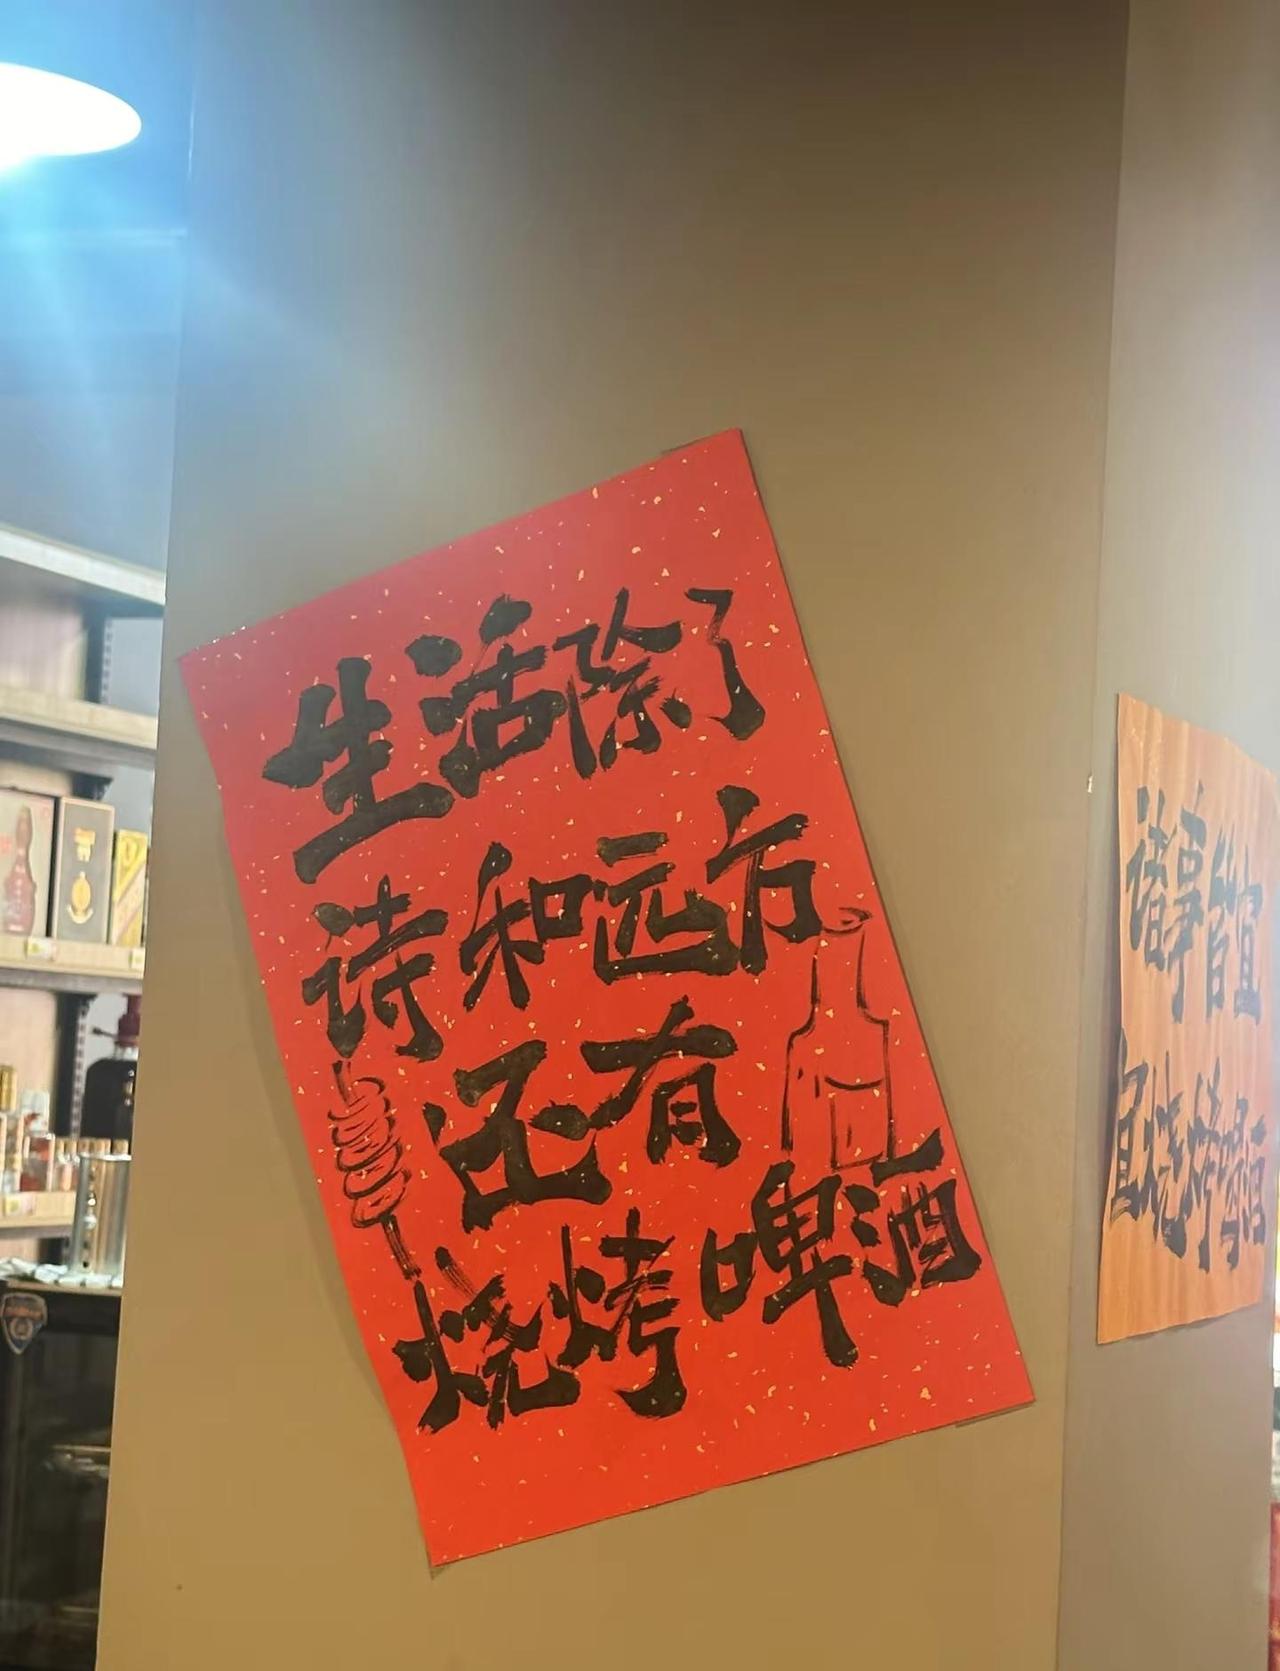 生活除了
诗和远方
还有
烧烤啤酒
诸事皆宜
宜烧烤喝酒